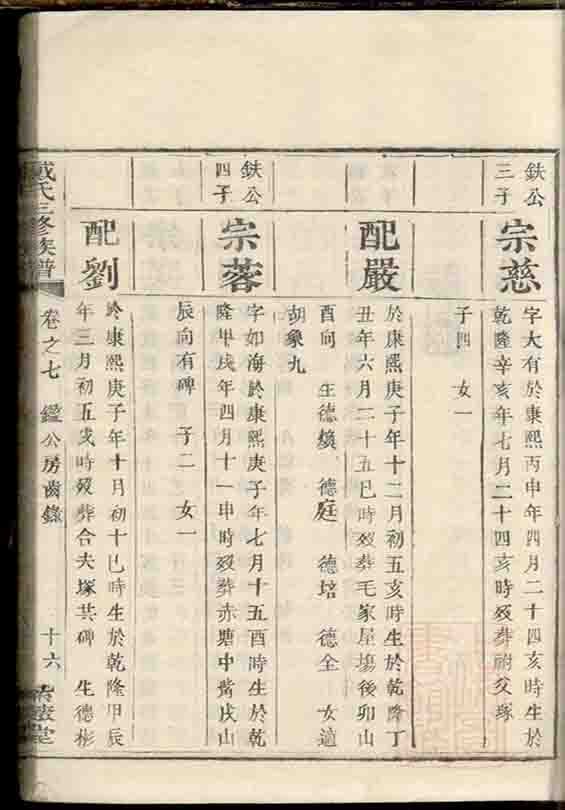 鈇公三子
宗慈
字大有於康熙丙申年四月二十四亥時生於
乾隆辛亥年七月二十四亥時歿葬祔父琢
子四 女一
配嚴
於康熙庚子年十二月初五亥時生於乾隆丁
丑年六月二十五巳時歿葬毛家屋塲後卯山
酉向 生德煥 德庭 德培 德全 女適
胡象九
鈇公四子
宗蓉
字如海於康熙庚子年七月十五酉時生於乾
隆甲戌年四月十一申時歿葬赤塘中嘴戌山
辰向有碑 子二 女一
配劉
於康熙庚子年十月初十巳時生於乾隆甲辰
年三月初五戌時歿葬合夫塚共碑 生德彬
戴氏三修族譜
卷之七 鑑公房齒錄
十六
堂